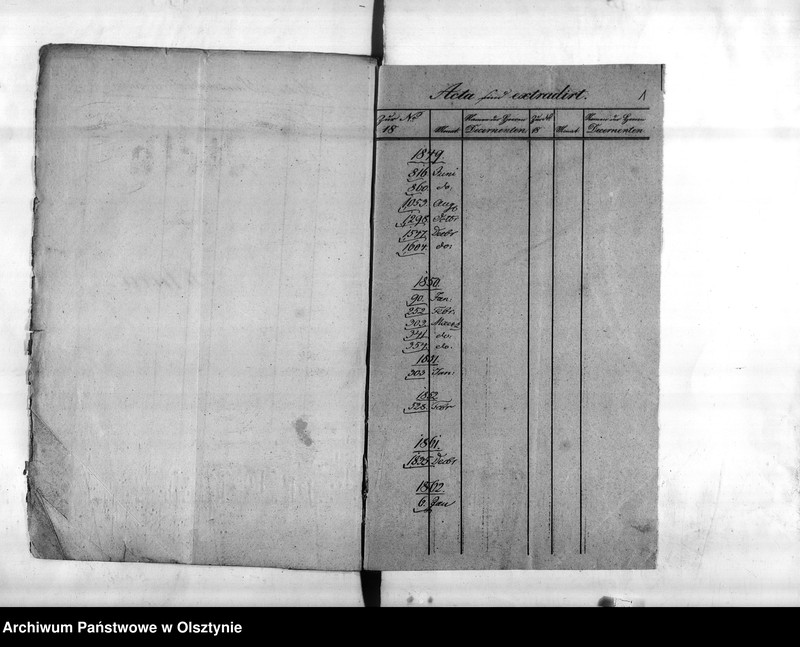 Acta sind extradirt.
Zur No 18 Monat Namen der Herren Decernenten Zur No 18 Monat Namen der Herren Decernenten
1849.
816. Juni
860. do.
1053. Aug.
1298. Octbr
1577. Decbr
1604. do.
1850.
90. Jan.
252. Febr.
303. Maerz
341. do.
357. do.
1851.
303. Jan.
1852.
328. Febr
1861.
1835. Decbr
1862.
6. Jan
Archiwum Państwowe w Olsztynie